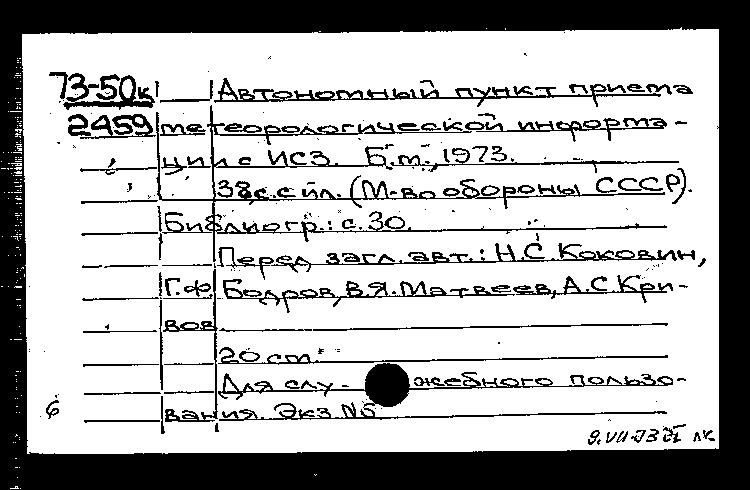 73-50к Автономный пункт приема
2459 метеорологической информа-
ции с ИСЗ. Б.м., 1973.
38 с. с ил. (М-во обороны СССР).
Библиогр.: с. 30.
Перед загл. авт.: Н.С. Коковин,
Г.Ф. Бодров, В.Я. Матвеев, А.С. Кри-
вов.
20 см.
Для слу- жебного пользо-
6 вания. Экз. №
9.VII-73